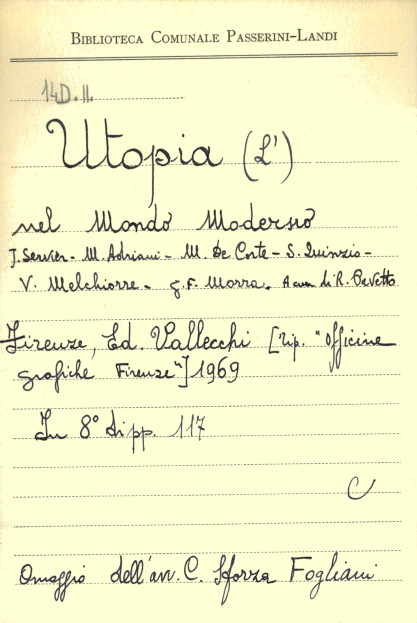 BIBLIOTECA COMUNALE PASSERINI-LANDI
14D.II.
Utopia (L')
nel Mondo Moderno
J. Servier - M. Adriani - M. De Corte - S. Quinzio -
V. Melchiorre - G. F. Morra. A cura di R. Pavetto
Firenze, Ed. Vallecchi [Tip. "Officine
grafiche Firenze"] 1969
In 8° di pp. 117
C
Omaggio dell'avv. C. Sforza Fogliani